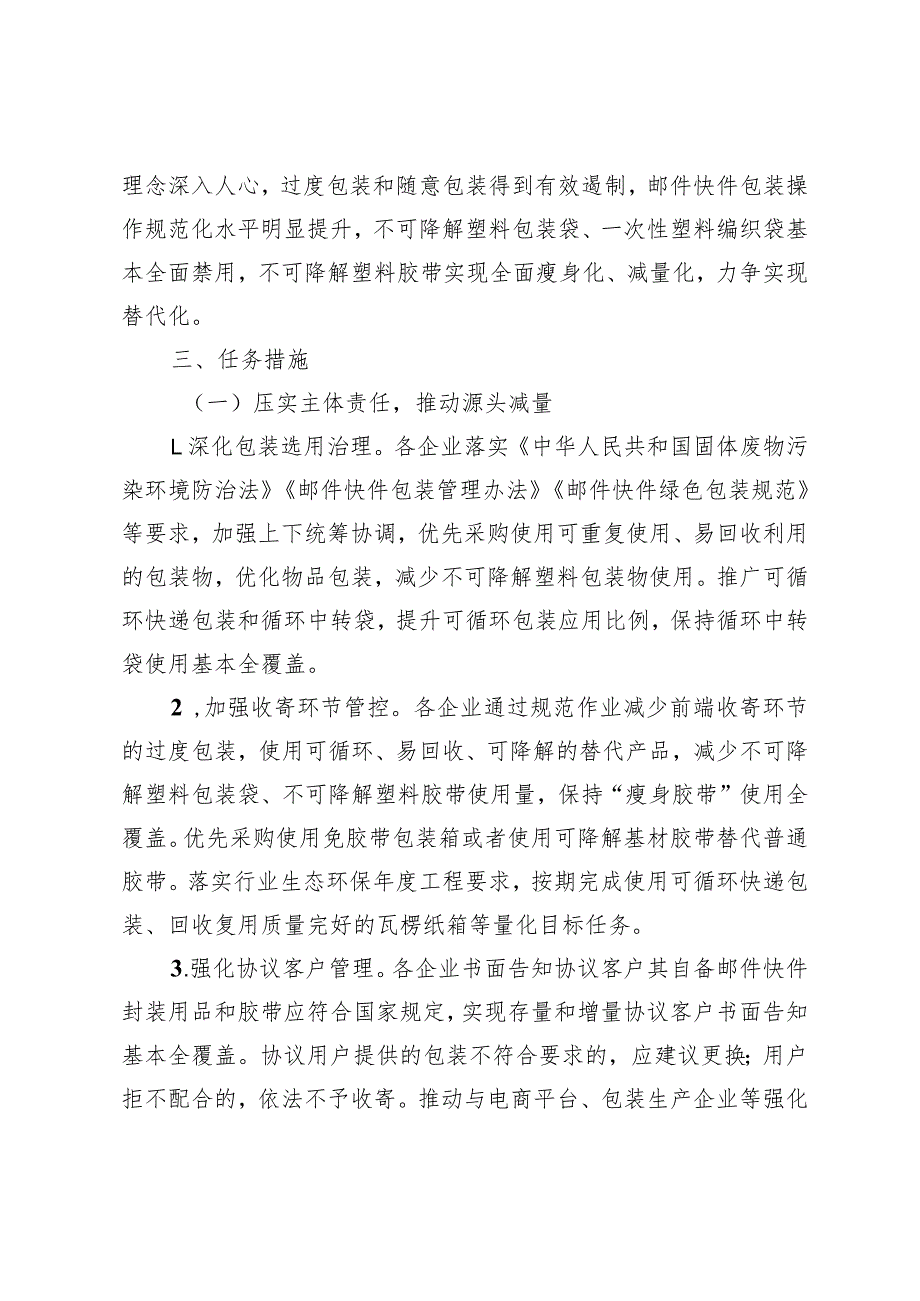 理念深入人心，过度包装和随意包装得到有效遏制，邮件快件包装操
作规范化水平明显提升，不可降解塑料包装袋、一次性塑料编织袋基
本全面禁用，不可降解塑料胶带实现全面瘦身化、减量化，力争实现
替代化。
三、任务措施
（一）压实主体责任，推动源头减量
L深化包装选用治理。各企业落实《中华人民共和国固体废物污
染环境防治法》《邮件快件包装管理办法》《邮件快件绿色包装规范》
等要求，加强上下统筹协调，优先采购使用可重复使用、易回收利用
的包装物，优化物品包装，减少不可降解塑料包装物使用。推广可循
环快递包装和循环中转袋，提升可循环包装应用比例，保持循环中转
袋使用基本全覆盖。
2 ,加强收寄环节管控。各企业通过规范作业减少前端收寄环节
的过度包装，使用可循环、易回收、可降解的替代产品，减少不可降
解塑料包装袋、不可降解塑料胶带使用量，保持“瘦身胶带”使用全
覆盖。优先采购使用免胶带包装箱或者使用可降解基材胶带替代普通
胶带。落实行业生态环保年度工程要求，按期完成使用可循环快递包
装、回收复用质量完好的瓦楞纸箱等量化目标任务。
3.强化协议客户管理。各企业书面告知协议客户其自备邮件快件
封装用品和胶带应符合国家规定，实现存量和增量协议客户书面告知
基本全覆盖。协议用户提供的包装不符合要求的，应建议更换；用户
拒不配合的，依法不予收寄。推动与电商平台、包装生产企业等强化